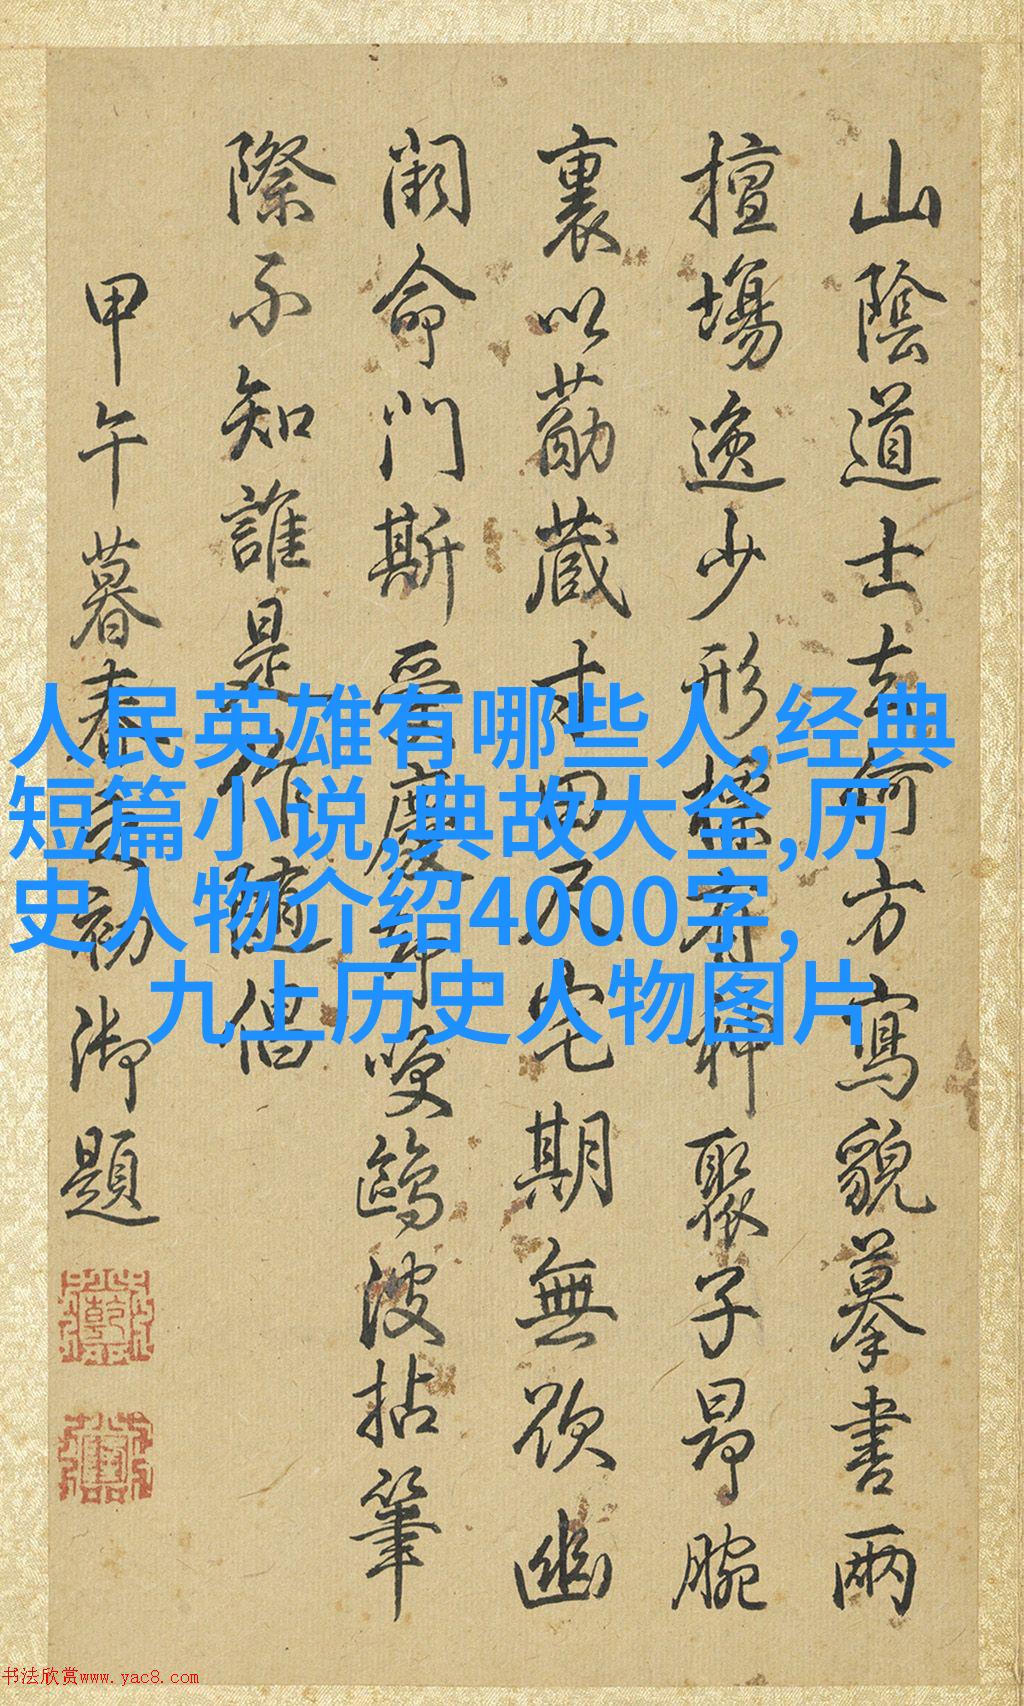 山陰道士何方寫貌摹書兩
擅場逸少形神聚子昂腕
裏以勗藏寸田尺宅期無欲幽
闕命門斯受慶鷗波拈筆
際不知誰是作隨侶
甲午暮春初御題
人民英雄有哪些人,经典
短篇小说,典故大全,历
史人物介绍4000字,
九上历史人物图片
书法欣赏www.yac8.com